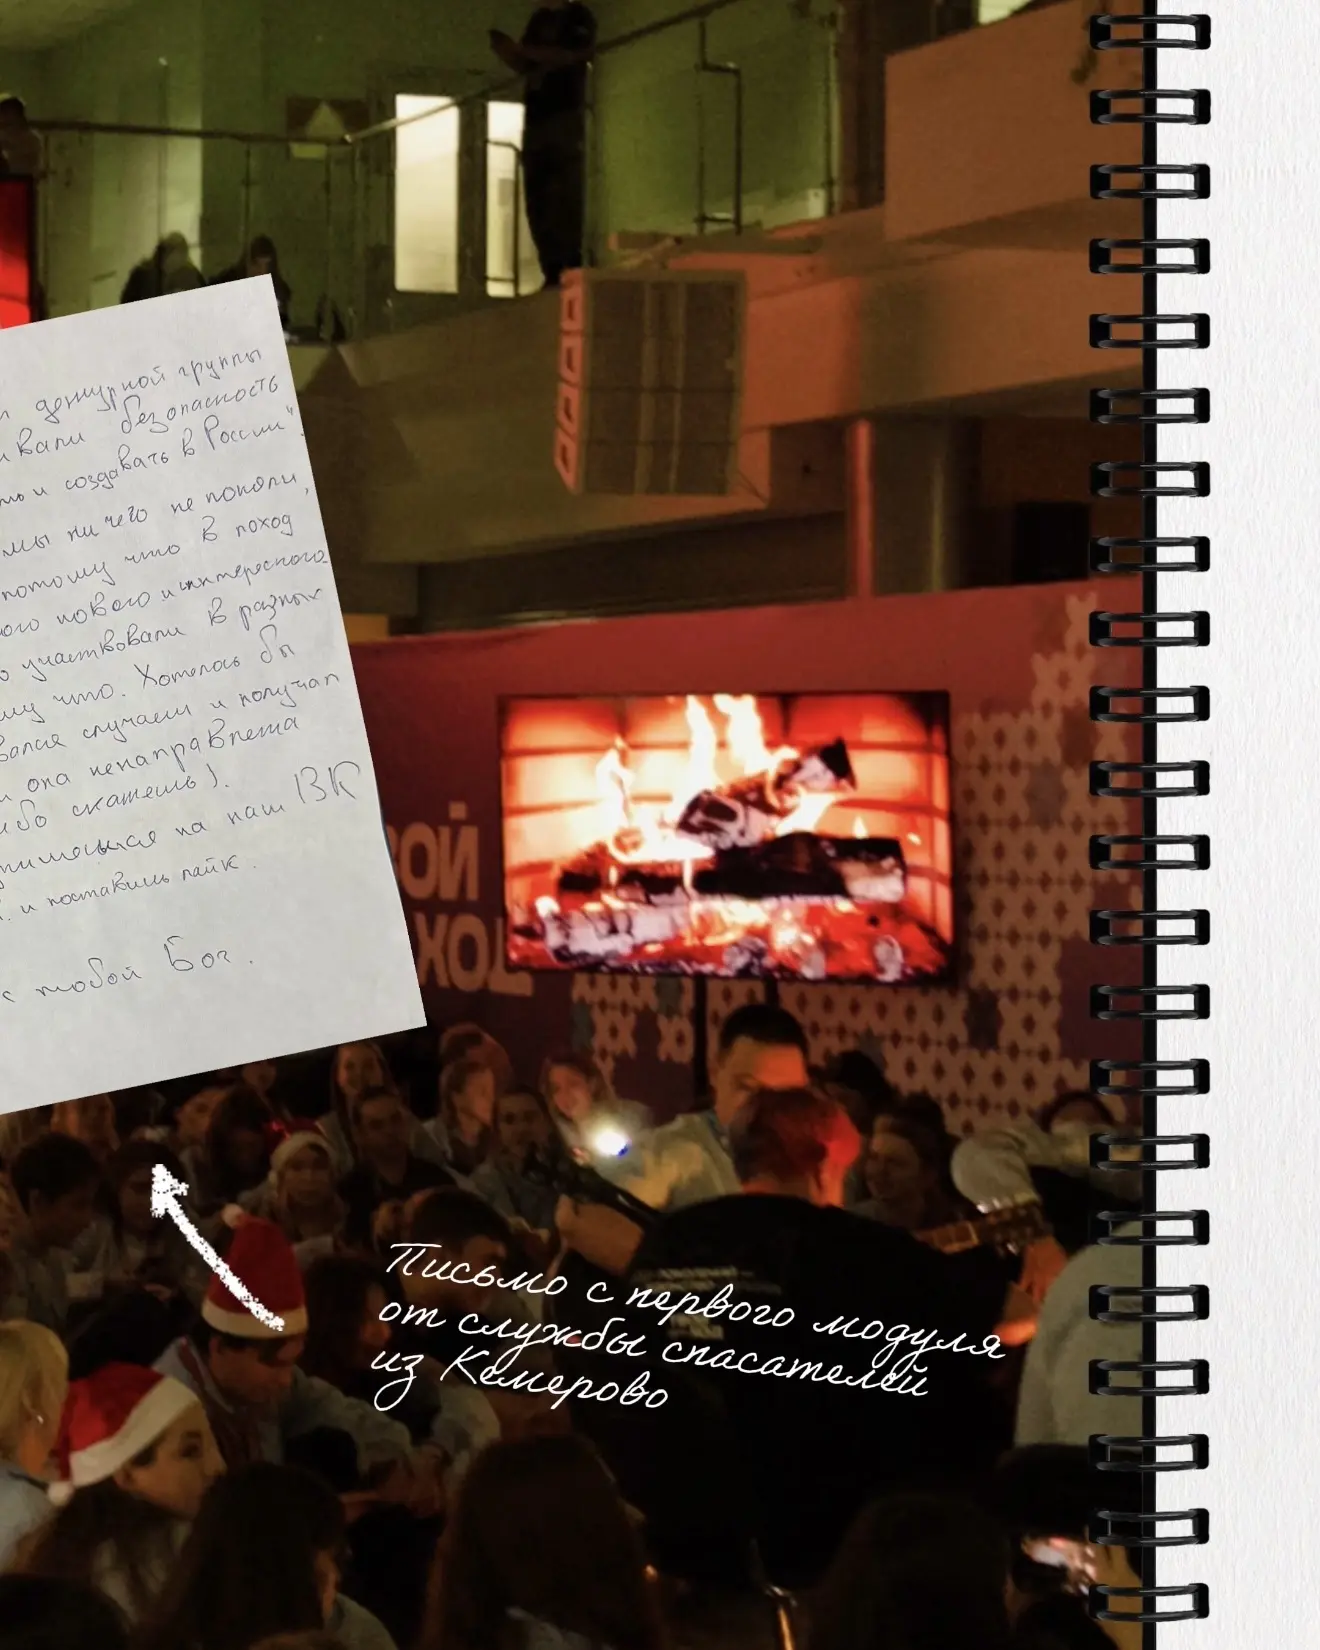 дежурной группы
безопасность
и создавать в России".
мы ничего не поняли,
потому что в поход
нового и интересного.
участвовали в разных
что. Хотелось бы
случаем и получал
она ненаправлена
скажешь).
на наш ВК
и поставишь лайк.
с тобой Бог.
ВОЙ
ХОД
Письмо с первого модуля
от службы спасателей
из Кемерово